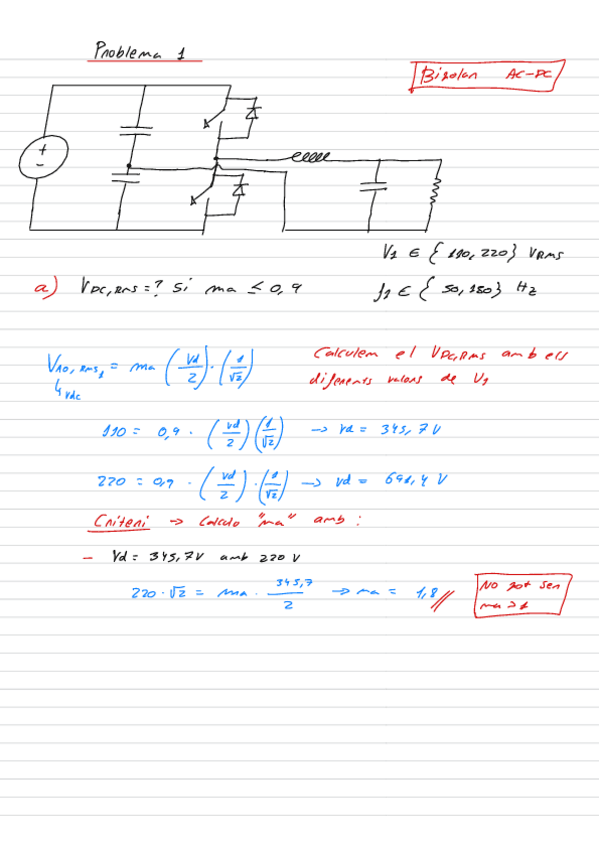 Problema 1
Bipolar AC-DC
+
-
V1 ∈ { 110, 220} VRMS
a) VDC,RMS = ? Si ma ≤ 0,9
f1 ∈ { 50, 180} Hz
VAO, RMS1 = ma (Vd/2) · (1/√2)
↳ VDC
Calculem el VDC,RMS amb els
diferents valors de V1
110 = 0,9 · (Vd/2) (1/√2) → Vd = 345,7 V
220 = 0,9 · (Vd/2) · (1/√2) → Vd = 691,4 V
Criteri → Calculo "ma" amb :
- Vd = 345,7V amb 220 V
220 · √2 = ma · 345,7/2 → ma = 1,8 //
No pot ser
ma > 1